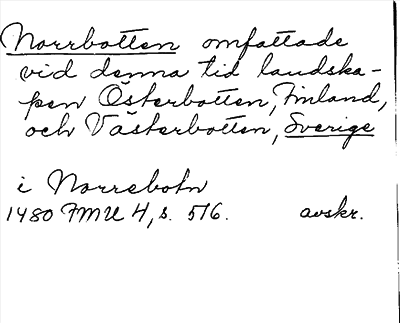 Norrbotten omfattade
vid denna tid landska-
pen Österbotten, Finland,
och Västerbotten, Sverige
i Norrebotn
1480 FMU 4, s. 516. avskr.